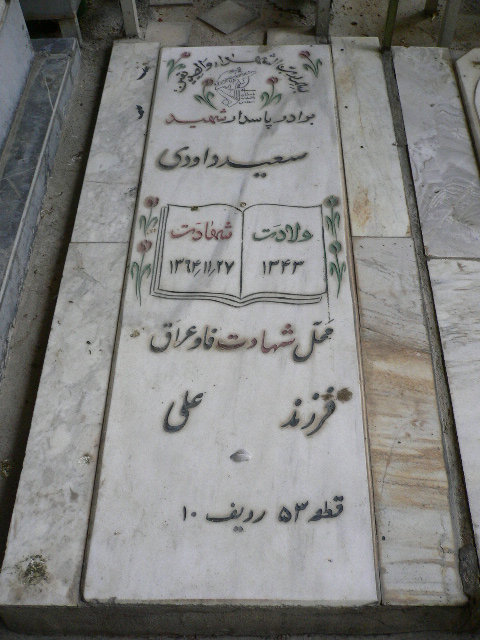 برادر پاسدار شهید
سعید داودی
ولادت شهادت
۱۳۴۳ ۱۳۶۴٫۱۱٫۲۷
محل شهادت فاو عراق
فرزند علی
قطعه ۵۳ ردیف ۱۰